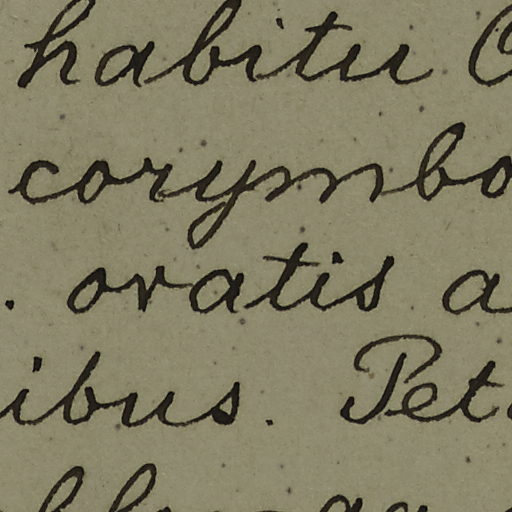 habitu
corymbo
. ovatis a
ibus. Pet